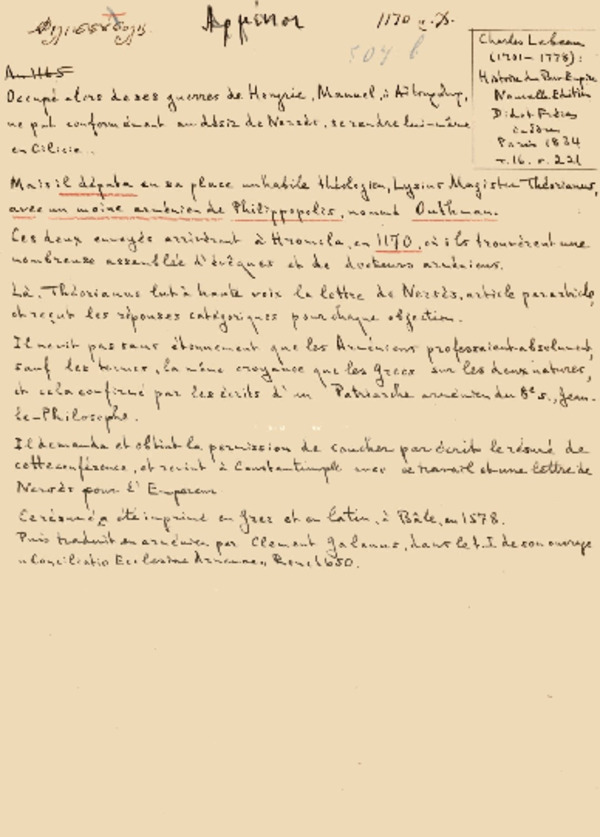 1170
504 b
Charles Lebeau
(1701–1778):
Histoire du Bas-Empire
Nouvelle Edition
Didot Frères
Paris 1834
t. 16. p. 221
An 1165
Occupé alors de ses guerres de Hongrie, Manuel, à
ne put conformément au désir de Nersès, se rendre lui-même
en Cilicie..
Mais il députa en sa place un habile théologien, Lysius Magister Théorianus,
avec un moine arménien de Philippopolis, nommé Outhman.
Ces deux envoyés arrivèrent à Hromcla, en 1170, où ils trouvèrent une
nombreuse assemblée d'évêques et de docteurs arméniens.
Là, Théorianus lut à haute voix la lettre de Nersès, article par article,
et reçut les réponses catégoriques pour chaque objection.
Il ne vit pas sans étonnement que les Arméniens professaient absolument,
sauf les termes, la même croyance que les Grecs sur les deux natures,
et cela confirmé par les écrits d'un Patriarche arménien du 8e s., Jean-
le-Philosophe.
Il demanda et obtint la permission de coucher par écrit le résumé de
cette conférence, et revint à Constantinople avec ce travail et une lettre de
Nersès pour l'Empereur
Ce résumé a été imprimé en grec et en latin, à Bâle, en 1578.
Puis traduit en arménien par Clement Galanus, dans le t. I de son ouvrage
"Conciliatio Ecclesiae Armenae" Rome 1650.